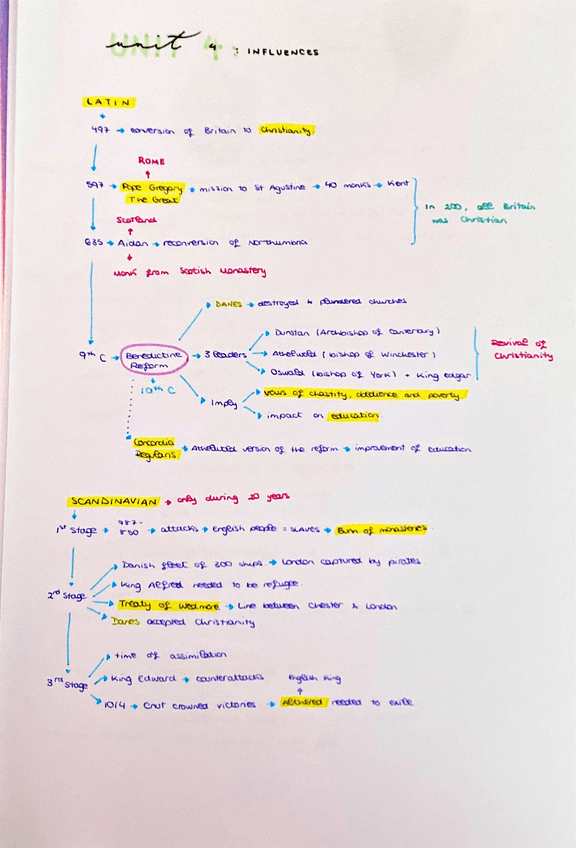 unit 4: INFLUENCES
LATIN
497 → conversion of Britain to Christianity.
ROME
597 → Pope Gregory The Great → mission to St Agustine → 40 monks → Kent
In 200, all Britain was Christian
Scotland
635 → Aidan → reconversion of Northumbria
Monk from Scotish Monastery
DANES → destroyed & plundered churches
9th C → Benedictine Reform → 3 leaders
Dunstan (Archbishop of Canterbury)
Aethelwald (bishop of Winchester)
Oswald (bishop of York) + King Edgar
Revival of Christianity
10th C
Imply
vows of chastity, obedience and poverty.
impact on education.
Concordia Regularis → Aethelwald version of the reform → improvement of education
SCANDINAVIAN → only during 20 years
1st Stage → 787-850 → attacks → English people = SLAVES → Burn of monasteries.
Danish fleet of 300 ships → London captured by pirates.
King Alfred needed to be refugee.
2nd Stage
Treaty of Wedmore → Line between Chester & London
Danes accepted Christianity
time of assimilation
3rd Stage
King Edward → counterattacks
English King
1014 → Cnut crowned victories → Aethered needed to exile